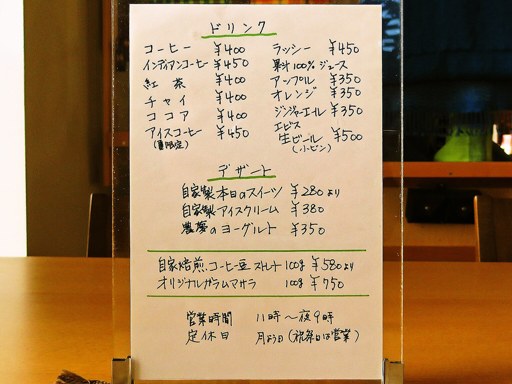 ドリンク
コーヒー ¥400
インディアンコーヒー ¥450
紅茶 ¥400
チャイ ¥400
ココア ¥400
アイスコーヒー ¥450
ラッシー ¥450
果汁100%ジュース
アップル ¥350
オレンジ ¥350
ジンジャーエール ¥350
エビス
生ビール ¥500
(小ビン)
デザート
自家製本日のスイーツ ¥280より
自家製アイスクリーム ¥380
農夢のヨーグルト ¥350
自家焙煎コーヒー豆 ストレート 100g ¥580より
オリジナルガラムマサラ 100g ¥750
営業時間 11時〜夜9時
定休日 月よう日(祝祭日は営業)